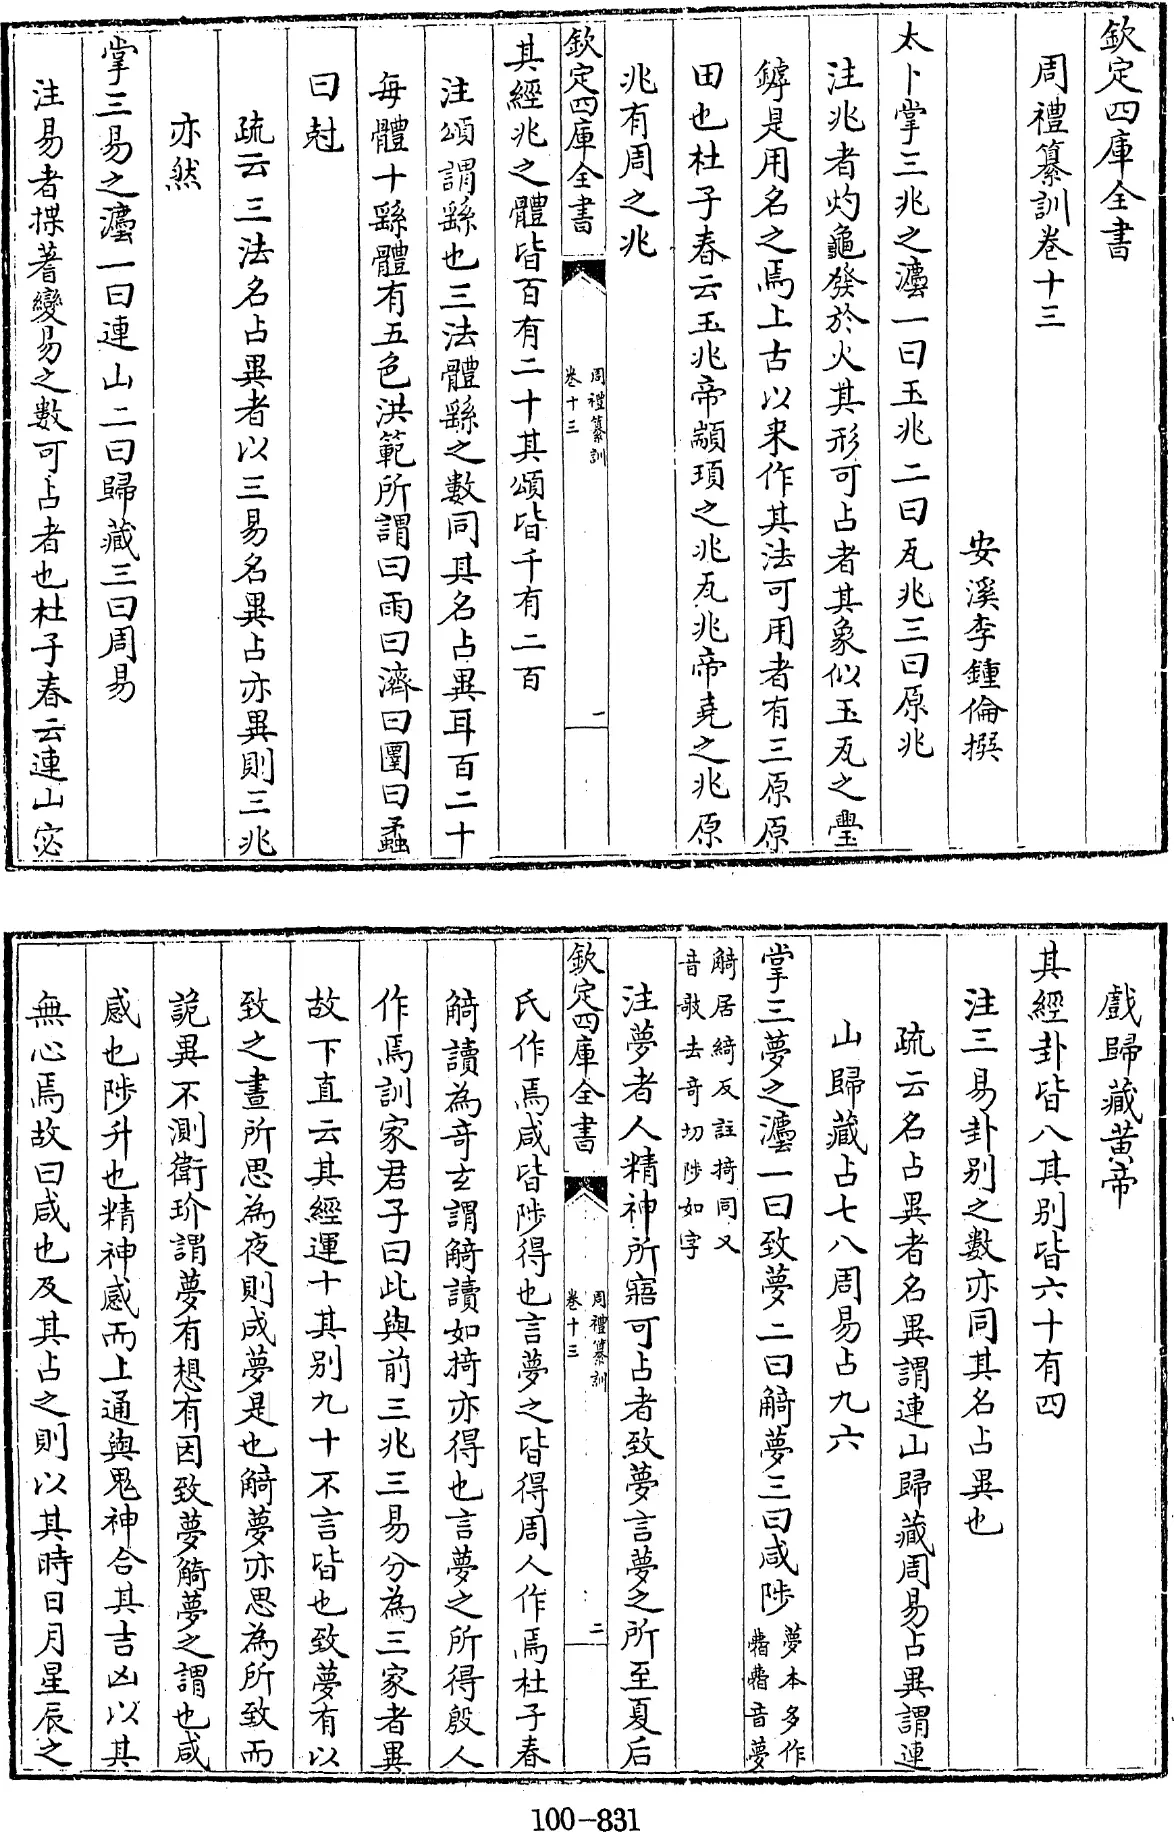 欽定四庫全書
周禮纂訓卷十三
安溪李鍾倫撰
太卜掌三兆之灋一曰玉兆二曰瓦兆三曰原兆
注兆者灼龜發於火其形可占者其象似玉瓦之璺
罅是用名之焉上古以來作其法可用者有三原原
田也杜子春云玉兆帝顓頊之兆瓦兆帝堯之兆原
兆有周之兆
欽定四庫全書
周禮纂訓
卷十三
一
其經兆之體皆百有二十其頌皆千有二百
注頌謂繇也三法體繇之數同其名占異耳百二十
每體十繇體有五色洪範所謂曰雨曰濟曰圛曰蟊
曰尅
疏云三法名占異者以三易名異占亦異則三兆
亦然
掌三易之灋一曰連山二曰歸藏三曰周易
注易者揲蓍變易之數可占者也杜子春云連山宓
戲歸藏黃帝
其經卦皆八其別皆六十有四
注三易卦別之數亦同其名占異也
疏云名占異者名異謂連山歸藏周易占異謂連
山歸藏占七八周易占九六
掌三夢之灋一曰致夢二曰觭夢三曰咸陟
夢本多作
音夢
觭居綺反註掎同又
音攲去奇切陟如字
注夢者人精神所寤可占者致夢言夢之所至夏后
欽定四庫全書
周禮纂訓
卷十三
二
氏作焉咸皆陟得也言夢之皆得周人作焉杜子春
觭讀為奇玄謂觭讀如掎亦得也言夢之所得殷人
作焉訓家君子曰此與前三兆三易分為三家者異
故下直云其經運十其別九十不言皆也致夢有以
致之晝所思為夜則成夢是也觭夢亦思為所致而
詭異不測衛玠謂夢有想有因致夢觭夢之謂也咸
感也陟升也精神感而上通與鬼神合其吉凶以其
無心焉故曰咸也及其占之則以其時日月星辰之
100-831